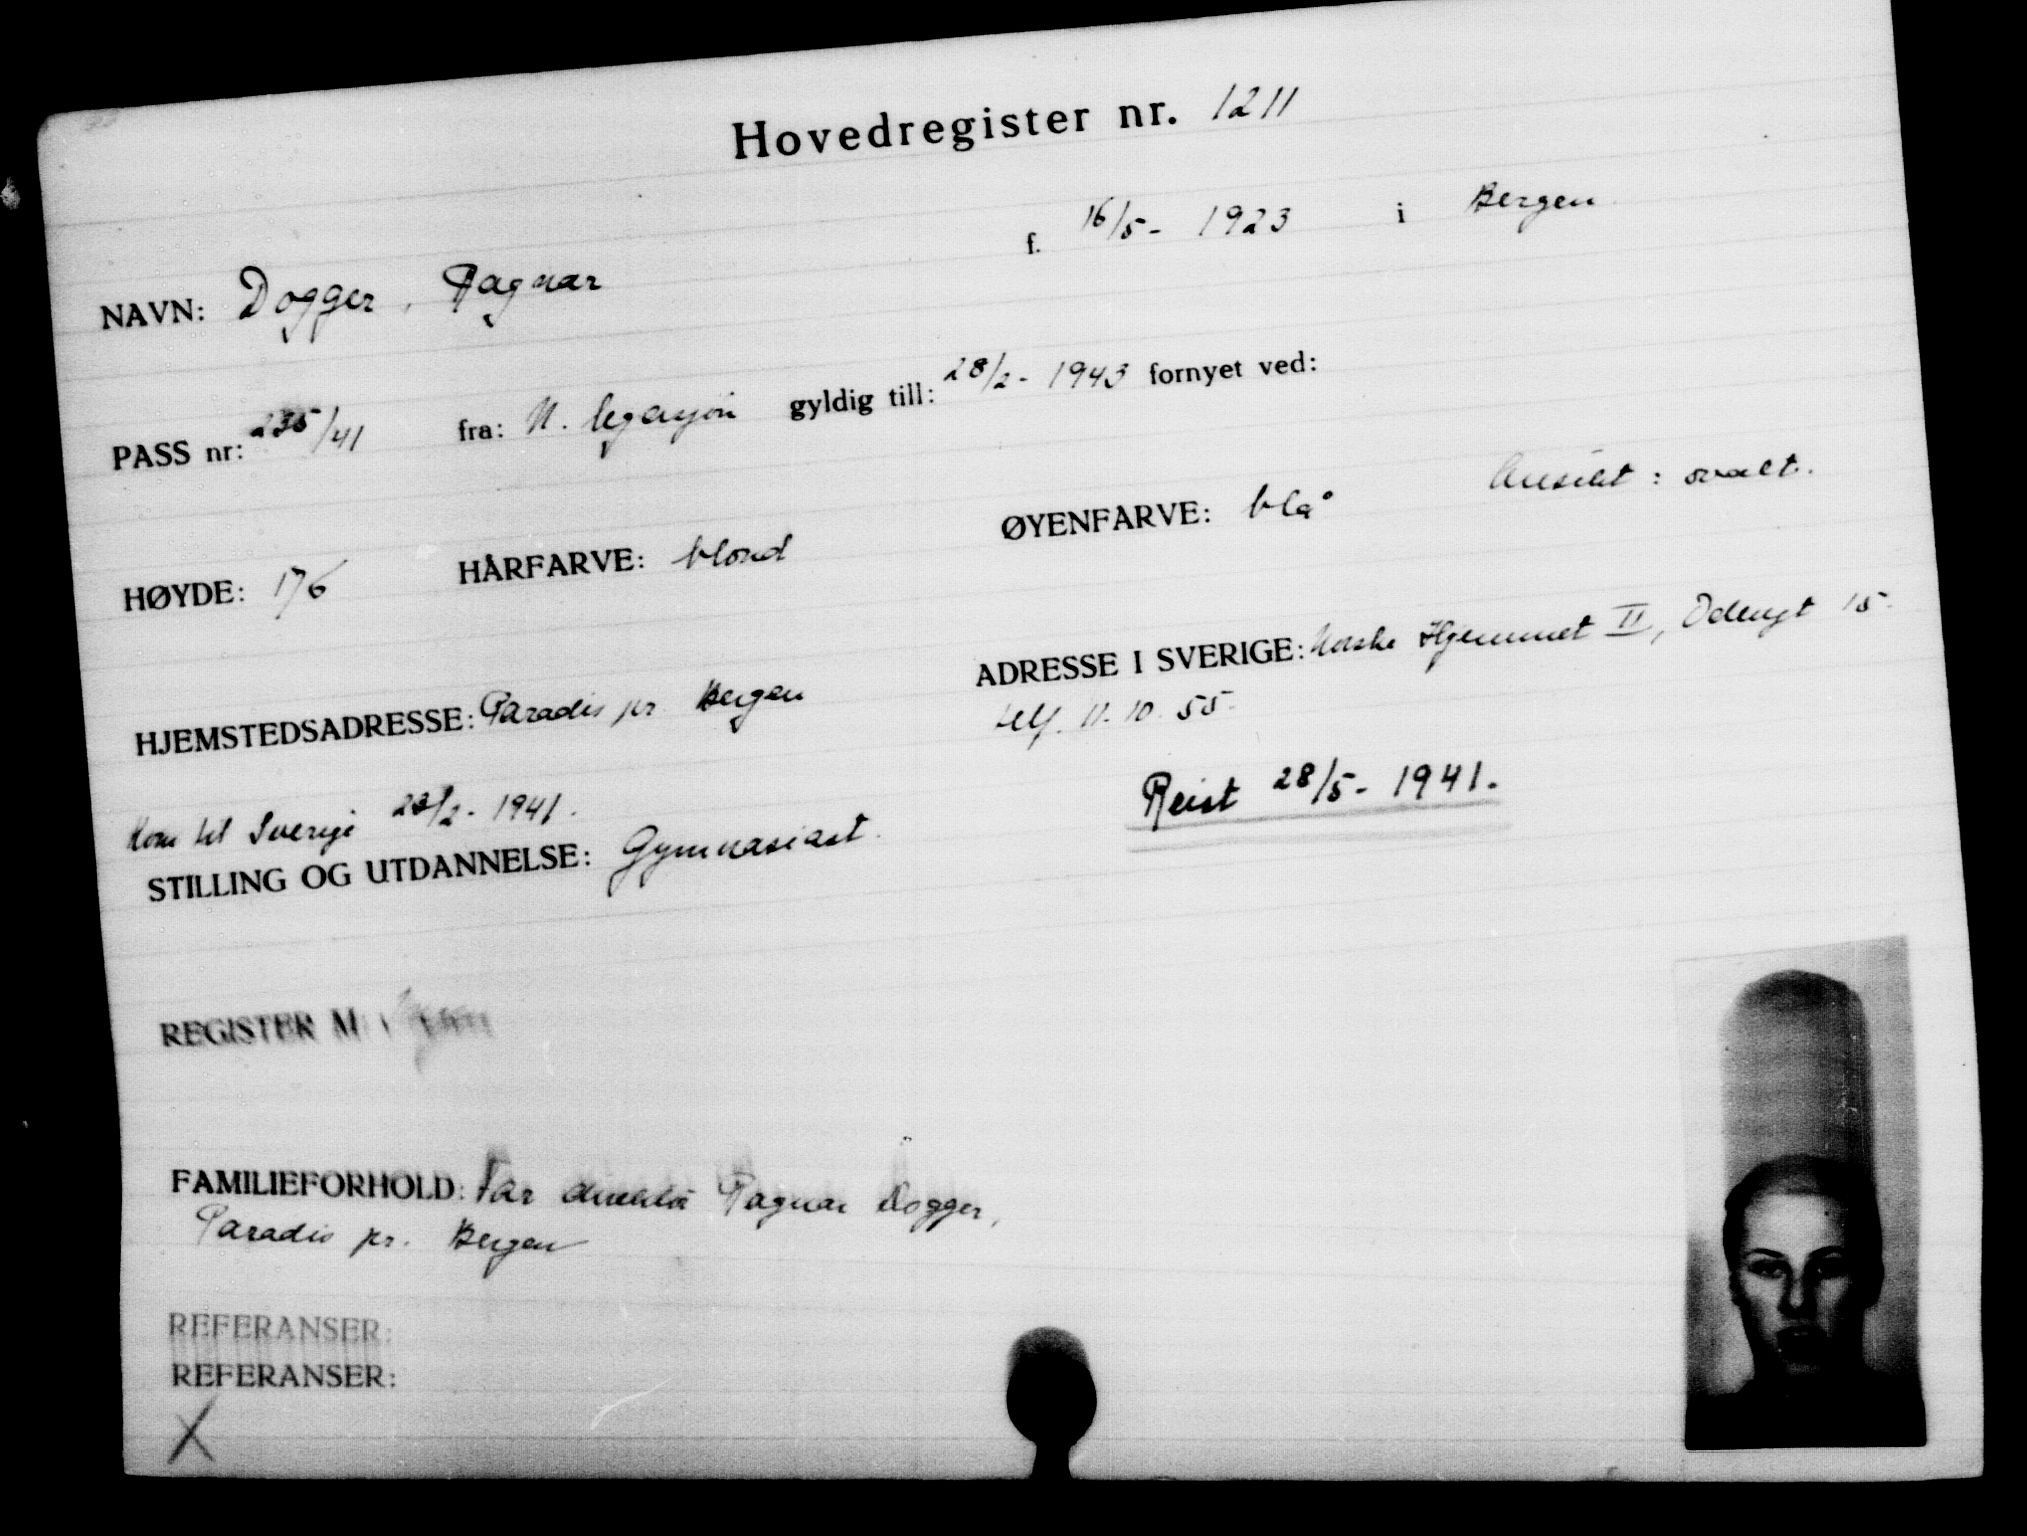 Hovedregister nr. 1211
NAVN: Dogger, Ragnar f. 16/5- 1923 i Bergen
PASS nr: 235/41 fra: N. legasjon gyldig till: 28/2- 1943 fornyet ved:
HØYDE: 176 HÅRFARVE: blond ØYENFARVE: blå Ansikt: ovalt.
HJEMSTEDSADRESSE: Paradis pr Bergen ADRESSE I SVERIGE: Norske Hjemmet II, Odengt 15
telf. 11.10.55
Kom til Sverige 28/2- 1941. Reist 28/5- 1941.
STILLING OG UTDANNELSE: Gymnasiast.
REGISTER
FAMILIEFORHOLD: Far direktør Ragnar Dogger,
Paradis pr. Bergen
REFERANSER:
REFERANSER:
X